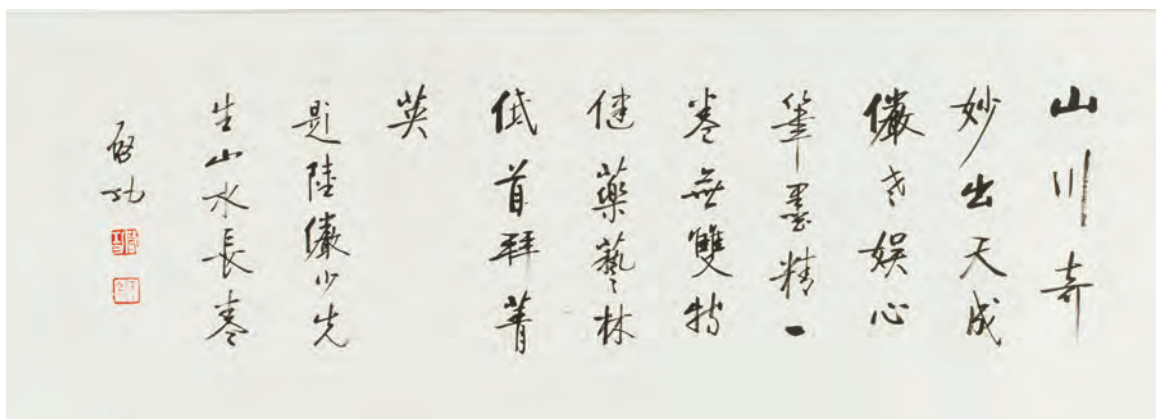 山川奇
妙出天成
儼老娱心
筆墨精一
卷無雙特
健藥藝林
低首拜菁
英
題陸儼少先
生山水長卷
啓功